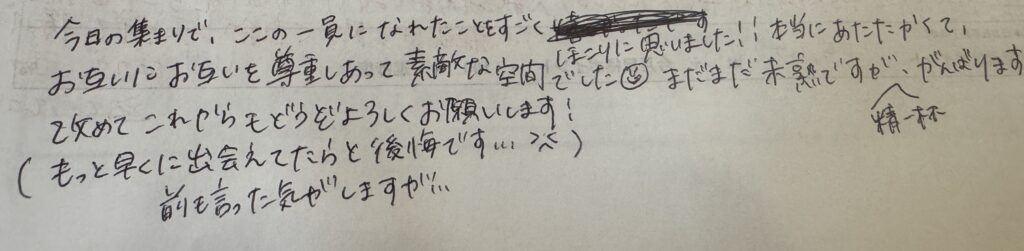 今日の集まりで、ここの一員になれたことをすごく ほこりに思いました!! 本当にあたたかくて、
お互いにお互いを尊重しあって素敵な空間でした☺ まだまだ未熟ですが、精一杯がんばります
改めてこれからもどうぞよろしくお願いします!
(もっと早くに出会えてたらと後悔です...)
前も言った気がしますが...